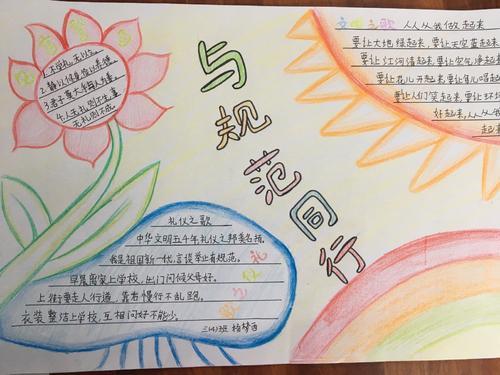 1.不学礼，无以立。
无礼则不成。
与规范同行
文明之歌 人人从我做起来
要让大地绿起来，要让天空蓝起来
要让江河清起来，要让空气净起来
要让花儿开起来，要让鸟儿唱起
要让人们笑起来，要让环
好起来，人人从我
起来
礼仪之歌
中华文明五千年，礼仪之邦美名扬，
我是祖国新一代，言谈举止有规范。
早晨离家上学校，出门问候父母好。
上街要走人行道，靠右慢行不乱跑。
衣装整洁上学校，互相问好不能少。
三(4)班